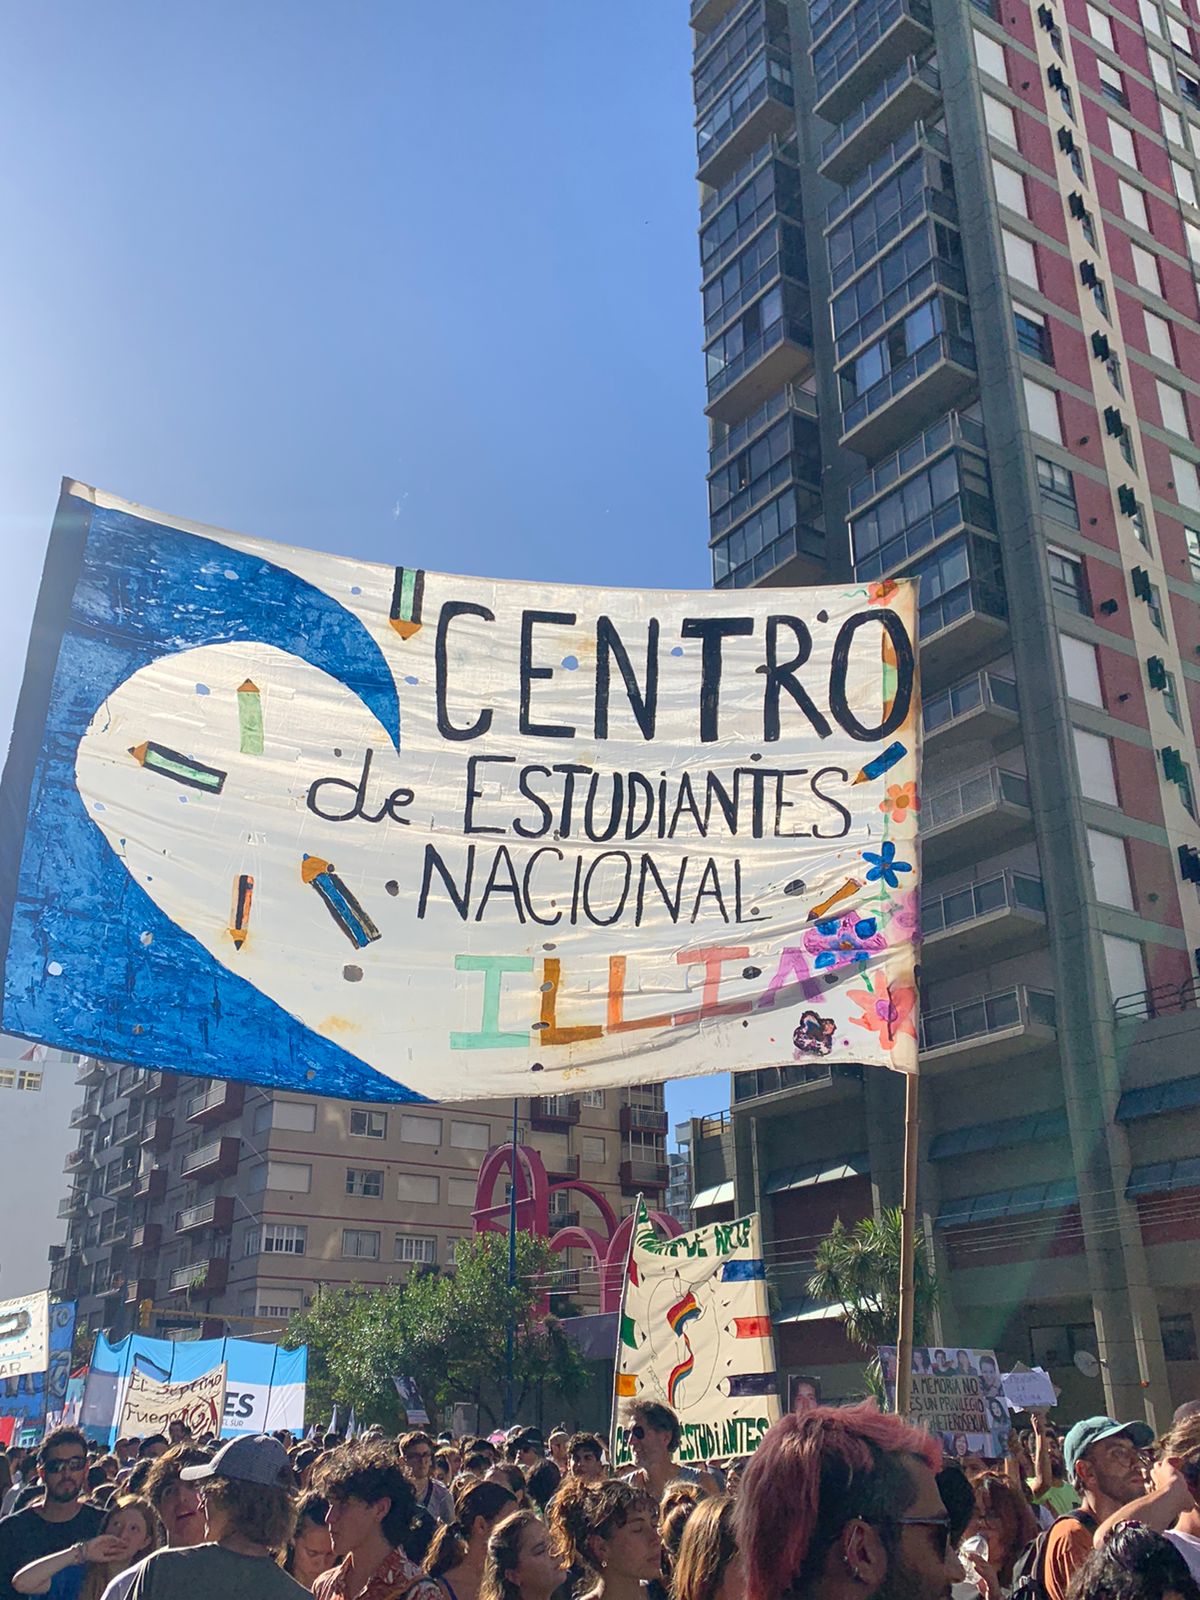 CENTRO
de ESTUDIANTES
NACIONAL
ILLIA
DE ARTE
ESTUDIANTES
EL SÉPTIMO
Fuego
ES
EL SUR
AR
LA MEMORIA NO
ES UN PRIVILEGIO
HETEROSEXUAL